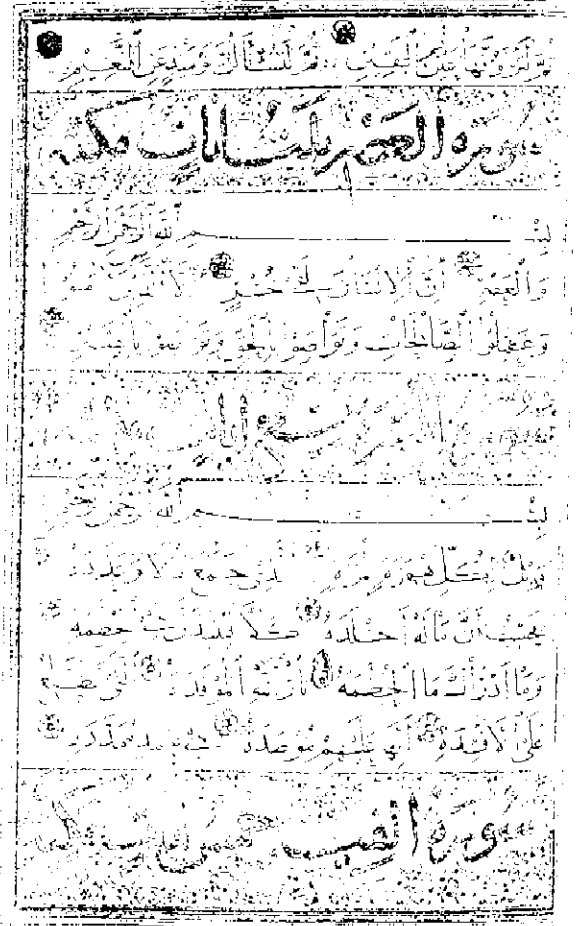 ثُمَّ لَتَرَوُنَّهَا عَيْنَ الْيَقِينِ ثُمَّ لَتُسْأَلُنَّ يَوْمَئِذٍ عَنِ النَّعِيمِ
سورة العصر ثلث ايات مكية
بِسْمِ اللَّهِ الرَّحْمَٰنِ الرَّحِيمِ
وَالْعَصْرِ إِنَّ الْإِنْسَانَ لَفِي خُسْرٍ إِلَّا الَّذِينَ آمَنُوا
وَعَمِلُوا الصَّالِحَاتِ وَتَوَاصَوْا بِالْحَقِّ وَتَوَاصَوْا بِالصَّبْرِ
سورة
بِسْمِ اللَّهِ الرَّحْمَٰنِ الرَّحِيمِ
وَيْلٌ لِكُلِّ هُمَزَةٍ لُمَزَةٍ الَّذِي جَمَعَ مَالًا وَعَدَّدَهُ
يَحْسَبُ أَنَّ مَالَهُ أَخْلَدَهُ كَلَّا لَيُنْبَذَنَّ فِي الْحُطَمَةِ
وَمَا أَدْرَاكَ مَا الْحُطَمَةُ نَارُ اللَّهِ الْمُوقَدَةُ الَّتِي تَطَّلِعُ
عَلَى الْأَفْئِدَةِ إِنَّهَا عَلَيْهِمْ مُؤْصَدَةٌ فِي عَمَدٍ مُمَدَّدَةٍ
سورة الفيل خمس ايات مكية